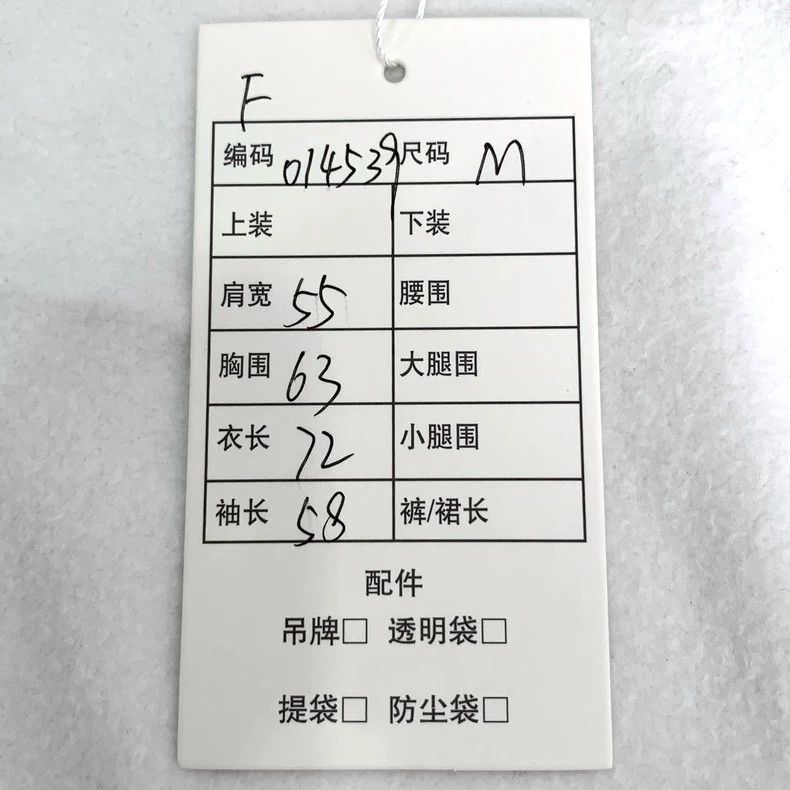 F
编码 014539 尺码 M
上装 下装
肩宽 55 腰围
胸围 63 大腿围
衣长 72 小腿围
袖长 58 裤/裙长
配件
吊牌□ 透明袋□
提袋□ 防尘袋□